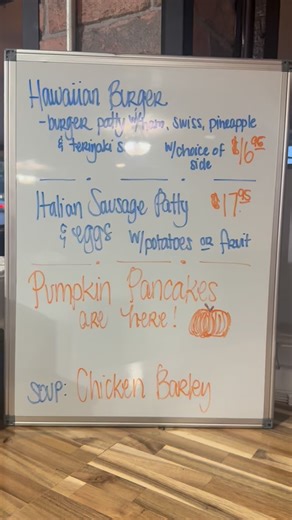 Hawaiian Burger
- burger patty w/ham, swiss, pineapple
& teriyaki s w/choice of $16.95
side
Italian Sausage Patty $17.95
& eggs w/potatoes or fruit
Pumpkin Pancakes
are here!
SOUP: Chicken Barley